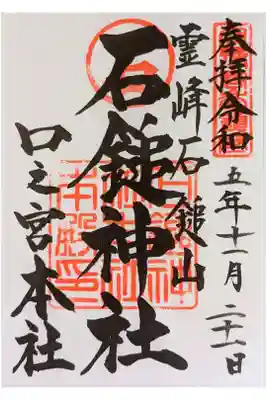 奉拝令和
五年十一月二十六日
霊峰石鎚山
石鎚神社
口之宮本社